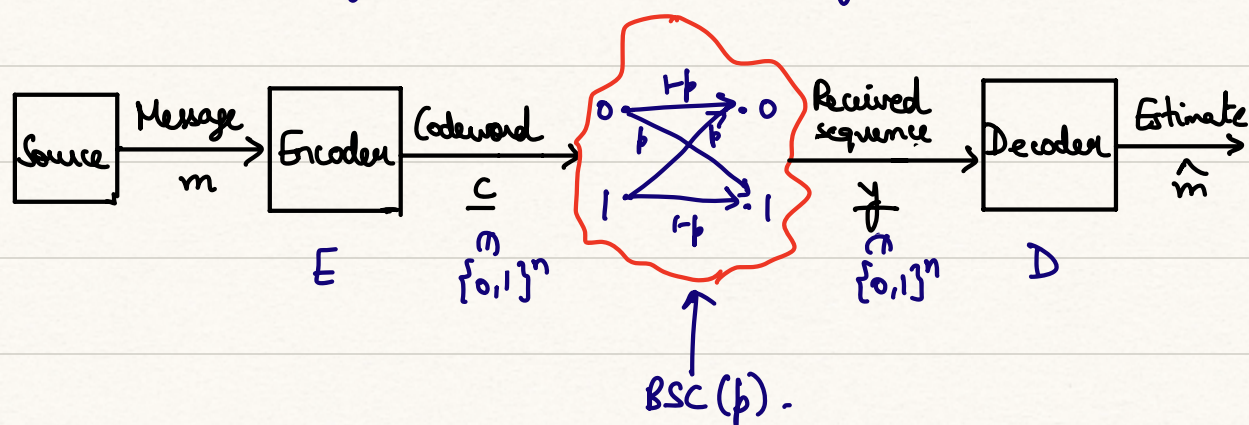 Source
Message
m
Encoder
E
Codeword
c
{0,1}ⁿ
1-p
0 0
p p
1 1
1-p
BSC(p).
Received
sequence
y
{0,1}ⁿ
Decoder
D
Estimate
m̂